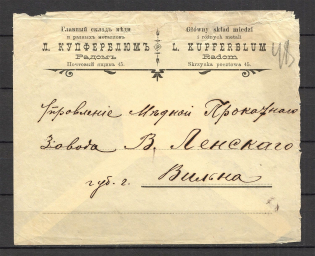 Главный складъ мѣди
и разныхъ металловъ
Л. КУПФЕРБЛЮМЪ
Радомъ
Почтовый ящикъ 45.
Główny skład miedzi
i różnych metali
L. KUPFERBLUM
Radom
Skrzynka pocztowa 45.
Управленіе Мѣдной Прокатнаго
Завода В. Ленскаго
губ. г. Вильна